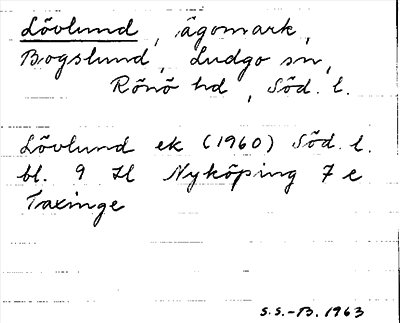 Lövlund, ägomark,
Bogslund, Ludgo sn,
Rönö hd, Söd. l.
Lövlund ek (1960) Söd. l.
bl. 9 Nyköping 7 e
Taxinge
S.S.-B. 1963